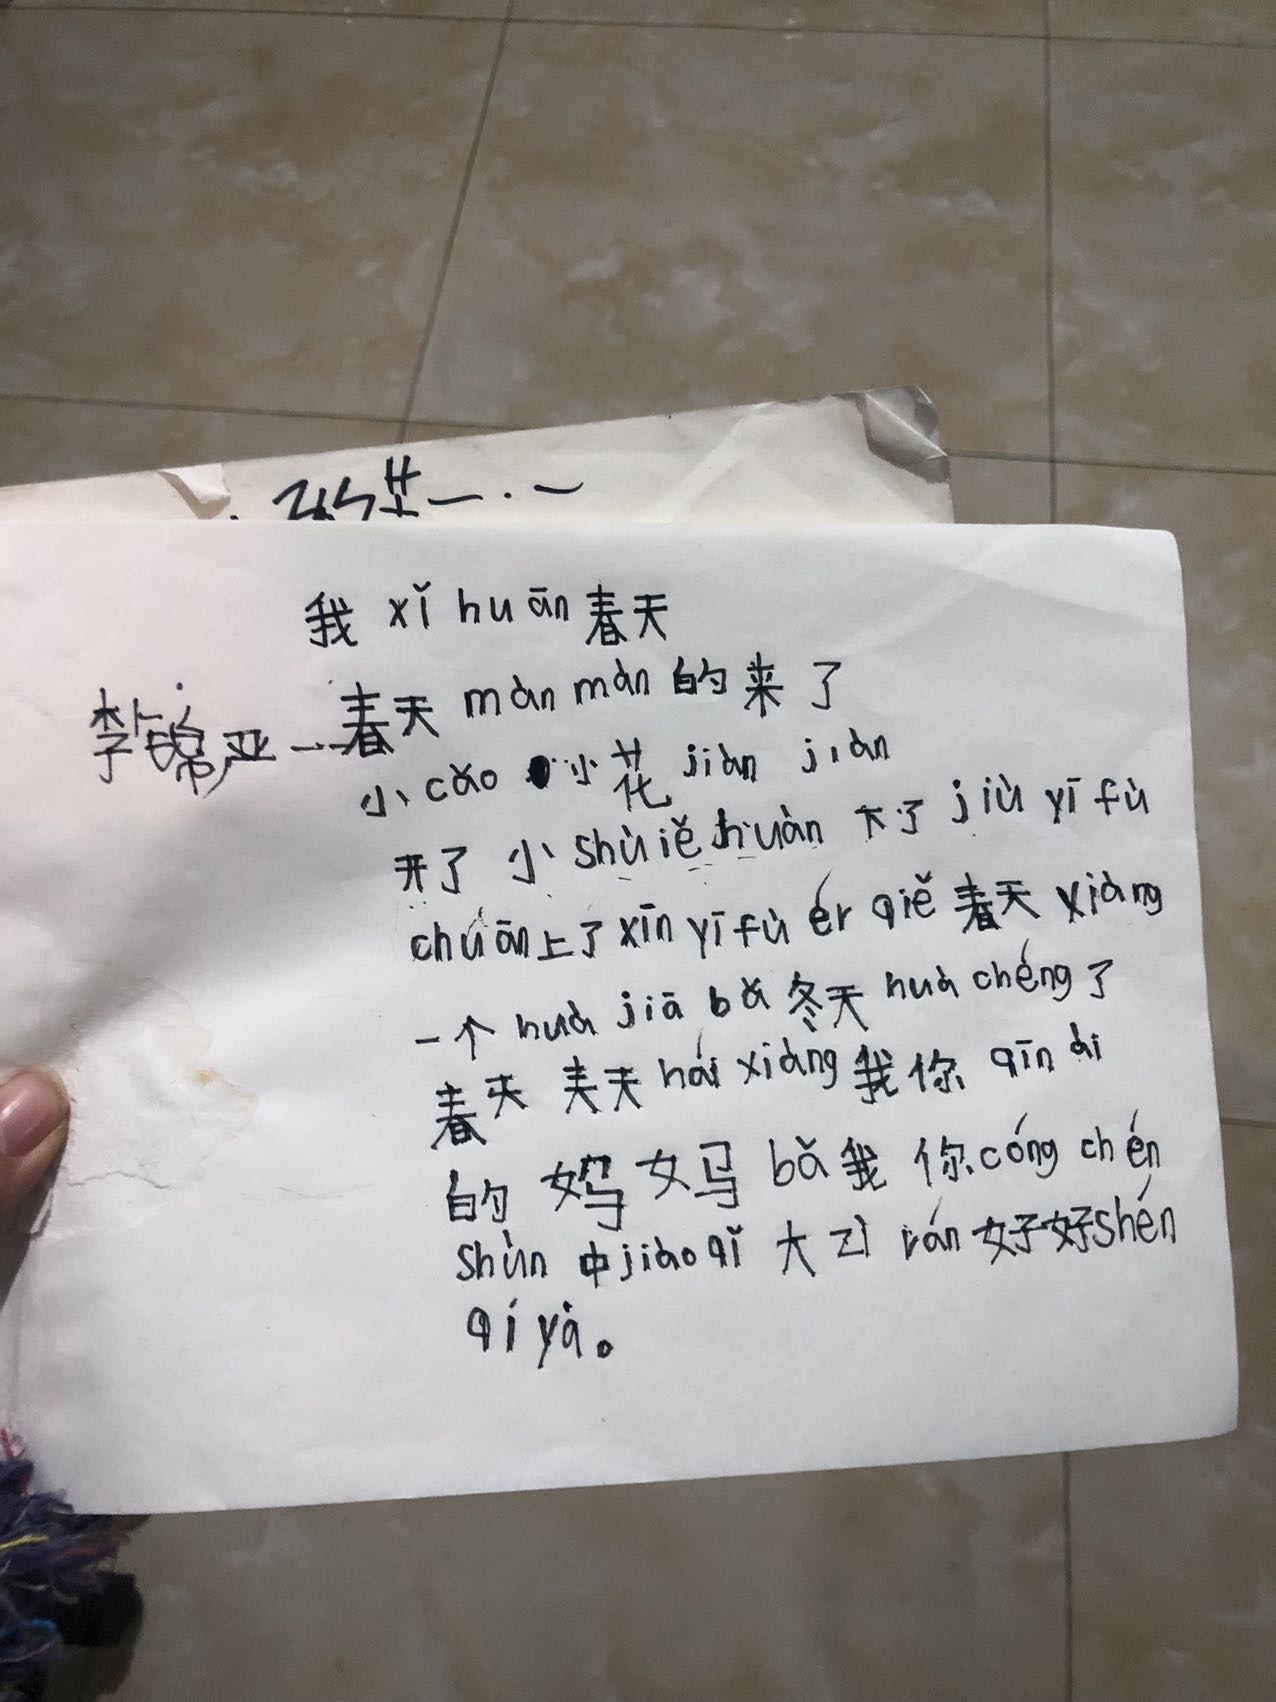 我 xǐ huān 春天
春天 màn màn 的 来 了
李锦亚
小 cǎo 小 花 jiàn jiàn
开了 小 shù iě huàn 下了 jiù yī fù
chuān 上了 xīn yī fù ér qiě 春天 xiàng
一个 huà jiā bǎ 冬天 huà chéng 了
春天 天 hái xiàng 我 你 qīn ài
的 妈 妈 bǎ 我 你 cóng chén
shùn 中 jiào qǐ 大 zì rán 好好 shén
qí yà。